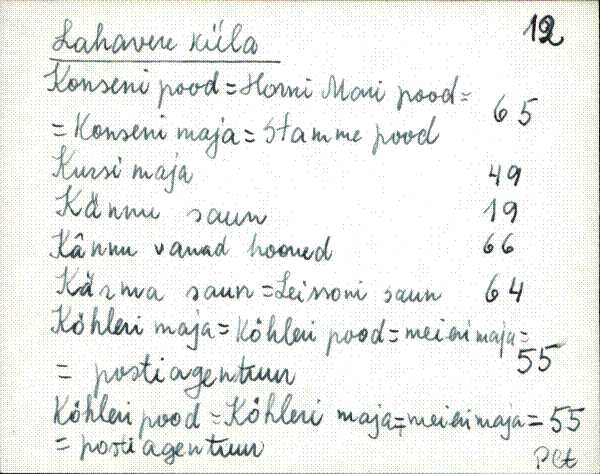 Lahavere küla 12
Konseni pood = Horni Mari pood =
= Konseni maja = Stamme pood 65
Kursi maja 49
Kännu saun 19
Kännu vanad hooned 66
Kärma saun = Leissoni saun 64
Köhleri maja = Köhleri pood = meieri maja =
= postiagentuur 55
Köhleri pood = Köhleri maja = meieri maja = 55
= postiagentuur